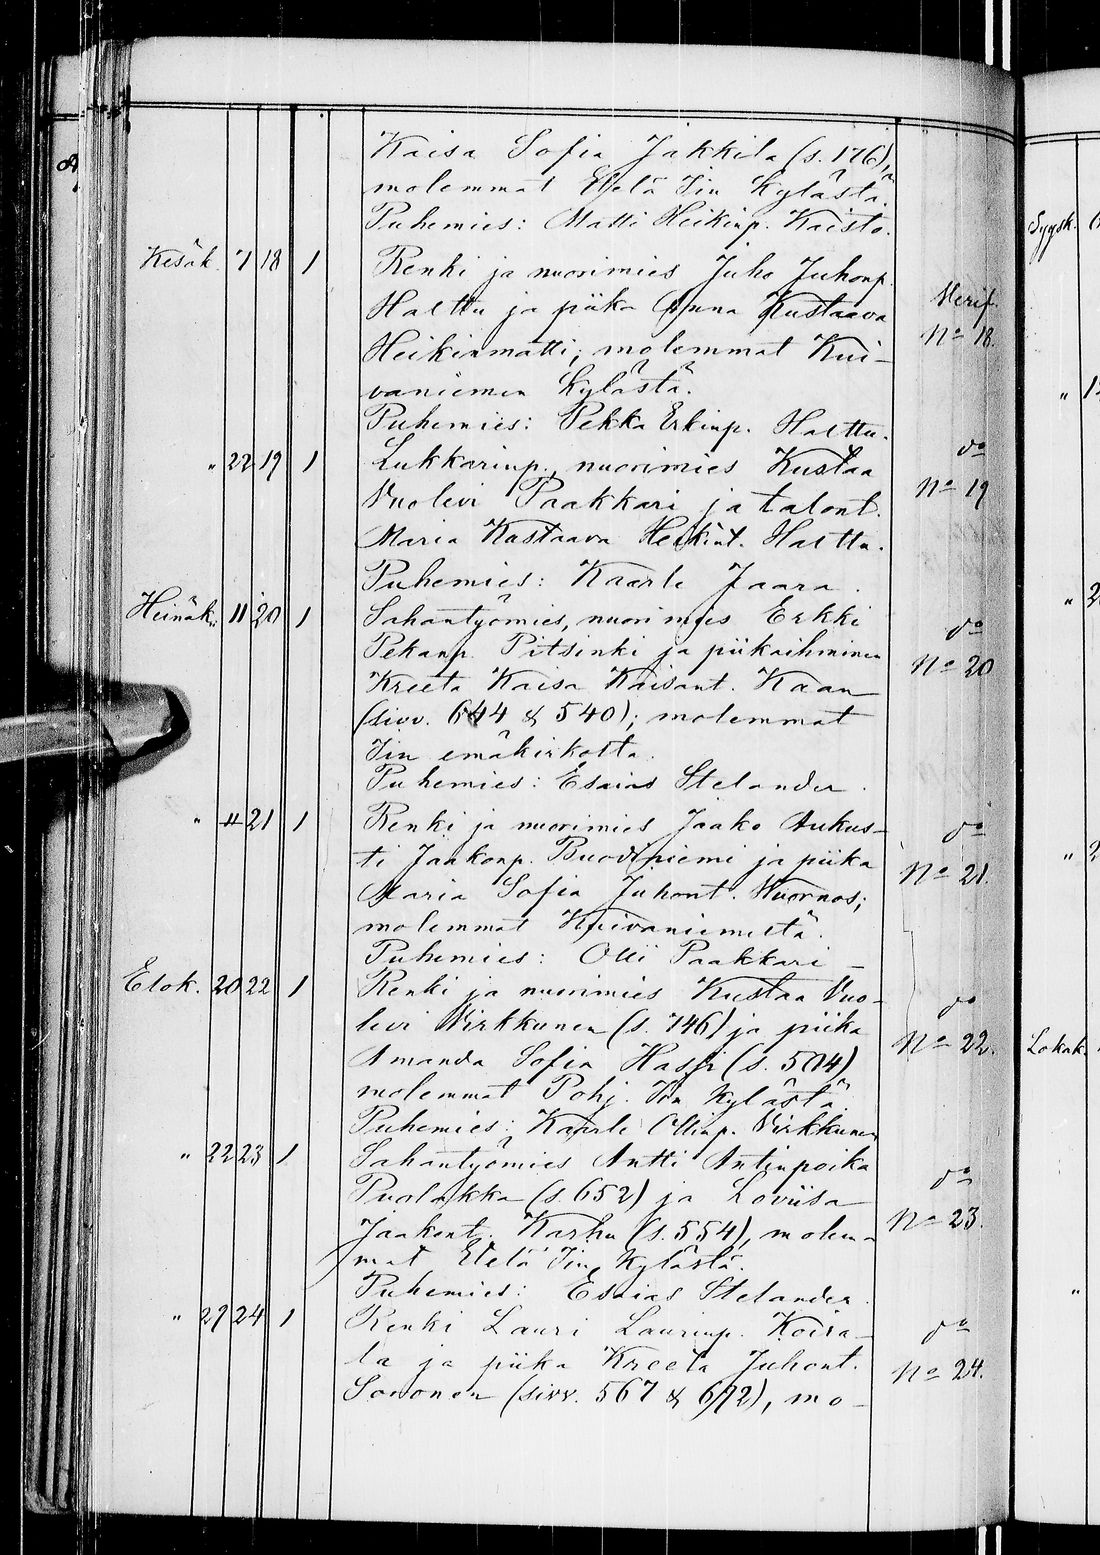 Kaisa Sofia Jakkila (s. 176),
molemmat Etelä Iin kylästä.
Puhemies: Matti Heikinp. Kaisto.
Kesäk. 7 18 1 Renki ja nuorimies Juho Juhonp.
Halttu ja piika Anna Kustaava
Heikinmatti; molemmat Kui-
vaniemen kylästä.
Puhemies: Pekka Erkinp. Halttu.
Merif. No 18.
" 22 19 1 Lukkarinp., nuorimies Kustaa
Vuolevi Paakkari ja talont.
Maria Kustaava Heikint. Halttu.
Puhemies: Kaarle Jaara.
do No 19
Heinäk. 11 20 1 Sahantyömies, nuorimies Erkki
Pekanp. Pitsinki ja piikaihminen
Kreeta Kaisa Kaisant. Kaan
(sivv. 644 & 540); molemmat
Iin emäkirkolta.
Puhemies: Esaias Stelander.
do No 20
" 11 21 1 Renki ja nuorimies Jaako Aukus-
ti Jaakonp. Buodiniemi ja piika
Maria Sofia Juhont. Huornos;
molemmat Kuivaniemeltä.
Puhemies: Olli Paakkari
do No 21
Elok. 20 22 1 Renki ja nuorimies Kustaa Vuo-
levi Virkkunen (s. 746) ja piika
Amanda Sofia Hassi (s. 504)
molemmat Pohj. Iin kylästä.
Puhemies: Kaarle Ollinp. Virkkunen
do No 22.
" 22 23 1 Sahantyömies Antti Antinpoika
Puolakka (s. 652) ja Loviisa
Jaakont. Karhu (s. 554), molem-
mat Etelä Iin kylästä.
Puhemies: Esaias Stelander.
do No 23.
" 27 24 1 Renki Lauri Laurinp. Koira-
la ja piika Kreeta Juhont.
Soronen (sivv. 567 & 672), mo-
do No 24.
Syysk.
Lokak.